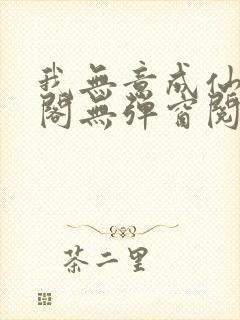 我無意成仙
閣無彈窗閱
茶二里